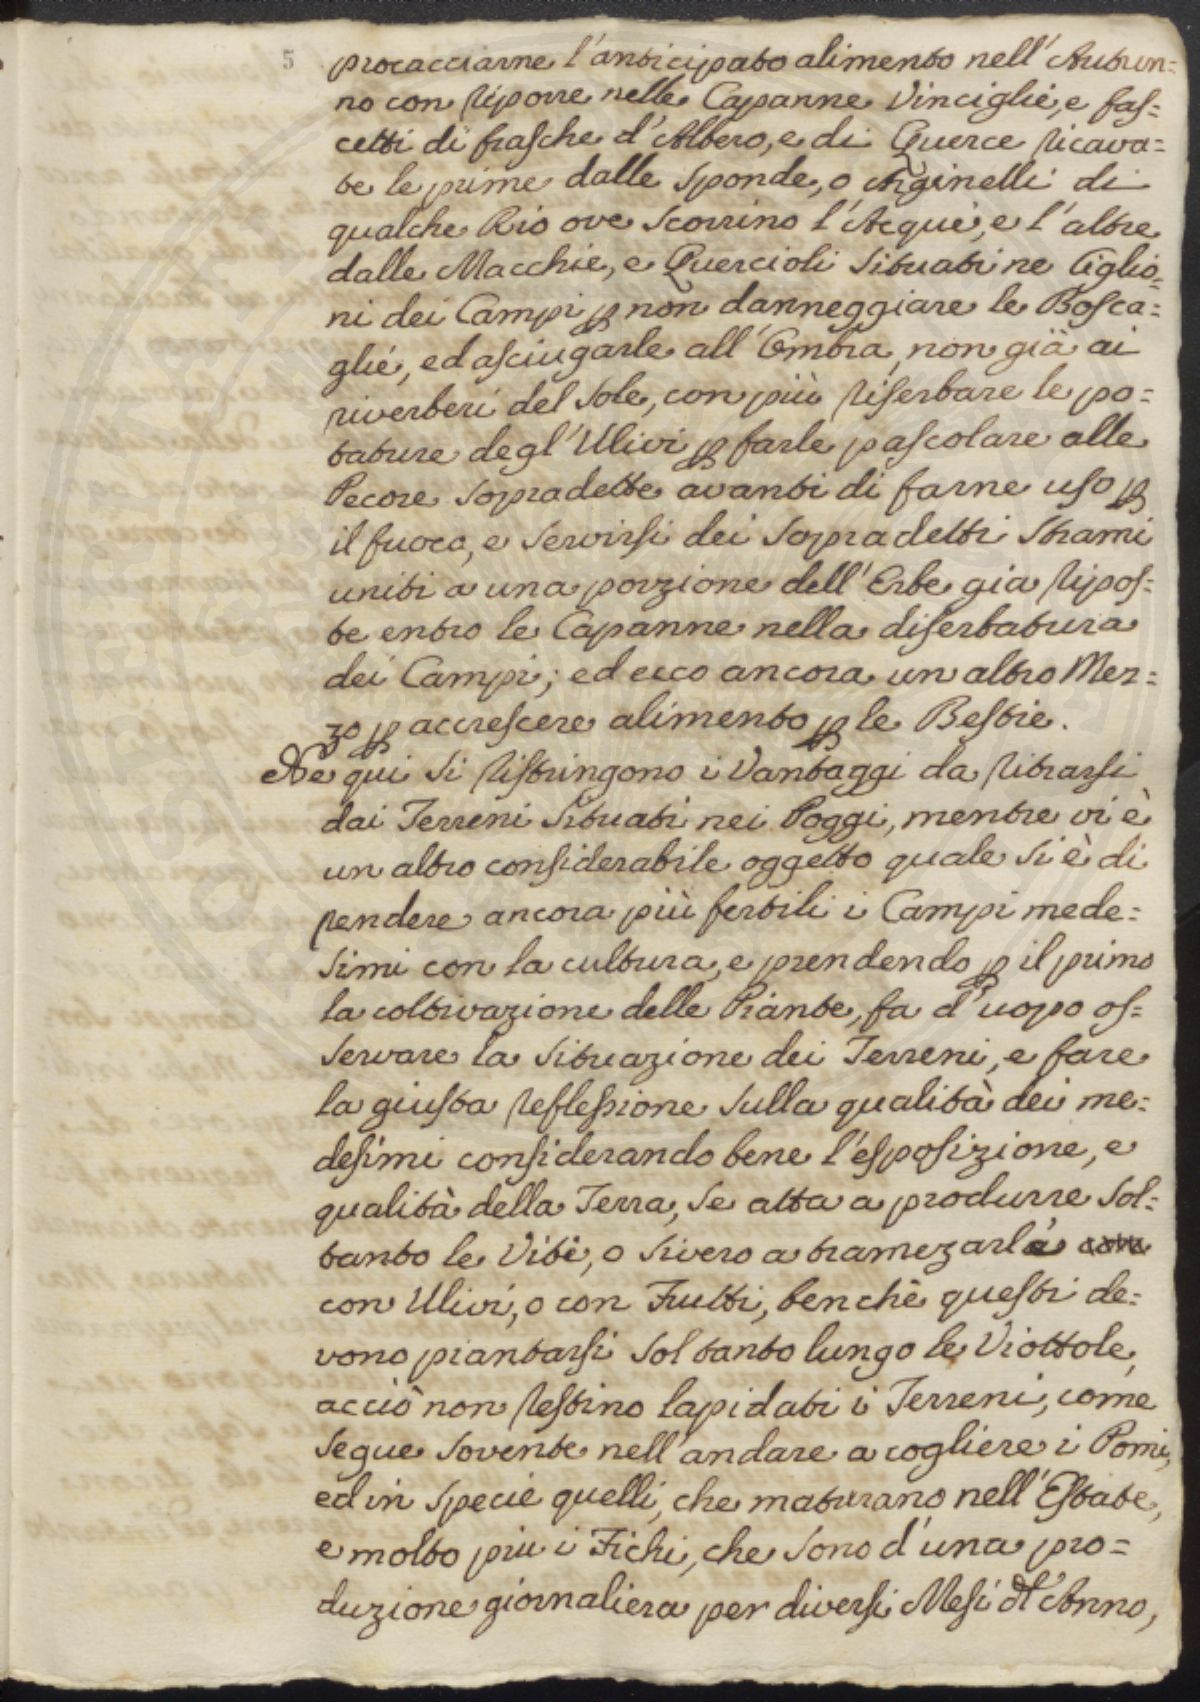 5
procacciarne l'anticipato alimento nell'Autun=
no con riporre nelle Capanne Vinciglie, e fas=
cetti di frasche d'Albero, e di Querce ricava=
te le prime dalle sponde, o Arginelli di
qualche Rio ove scorrino l'Acque, e l'altre
dalle Macchie, e Quercioli situati ne Ciglio=
ni dei Campi ꝑ non danneggiare le Bosca=
glie, ed asciugarle all'Ombra, non già ai
riverberi del Sole, con più riserbare le po=
tature degl'Ulivi ꝑ farle pascolare alle
Pecore sopradette avanti di farne uso ꝑ
il fuoco, e servirsi dei sopradetti strami
uniti a una porzione dell'Erbe gia ripos=
te entro le Capanne nella diserbatura
dei Campi; ed ecco ancora un altro Mez=
zo ꝑ accrescere alimento ꝑ le Bestie.
Ne qui si ristringono i Vantaggi da ritrarsi
dai Terreni situati nei Poggi, mentre vi è
un altro considerabile oggetto quale si è di
rendere ancora più fertili i Campi mede=
simi con la cultura, e prendendo ꝑ il primo
la coltivazione delle Piante, fa d'uopo os=
servare la situazione dei Terreni, e fare
la giusta reflessione sulla qualità dei me=
desimi considerando bene l'esposizione, e
qualità della Terra, se atta a produrre sol=
tanto le Viti, o sivero a tramezarla con
con Ulivi, o con Frutti, benchè questi de=
vono piantarsi soltanto lungo le Viottole,
acciò non restino lapidati i Terreni, come
segue sovente nell'andare a cogliere i Pomi,
ed in specie quelli, che maturano nell'Estate,
e molto piu i Fichi, che sono d'una pro=
duzione giornaliera per diversi Mesi dl'Anno,